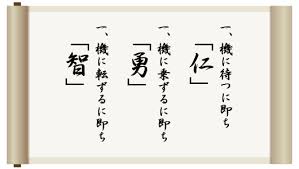 一、機に待つに即ち
「仁」
一、機に乗ずるに即ち
「勇」
一、機に転ずるに即ち
「智」